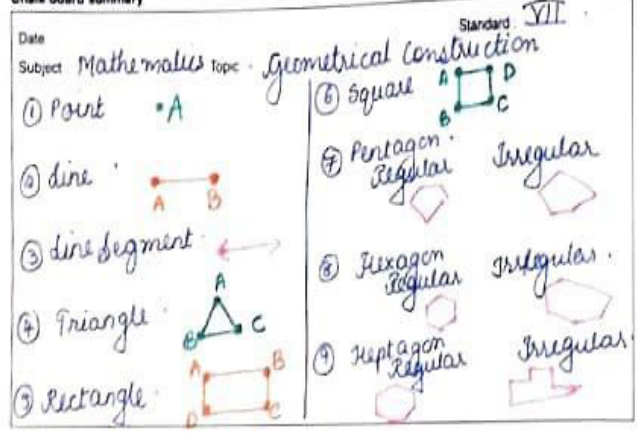 Chalk board summary
Standard. VII
Date
Subject Mathematics Topic . Geometrical Construction
① Point • A
② Line
A B
③ Line Segment
④ Triangle
A
B C
⑤ Rectangle
A B
D C
⑥ Square
A D
B C
⑦ Pentagon
Regular Irregular
⑧ Hexagon
Regular Irregular.
⑨ Heptagon
Regular Irregular